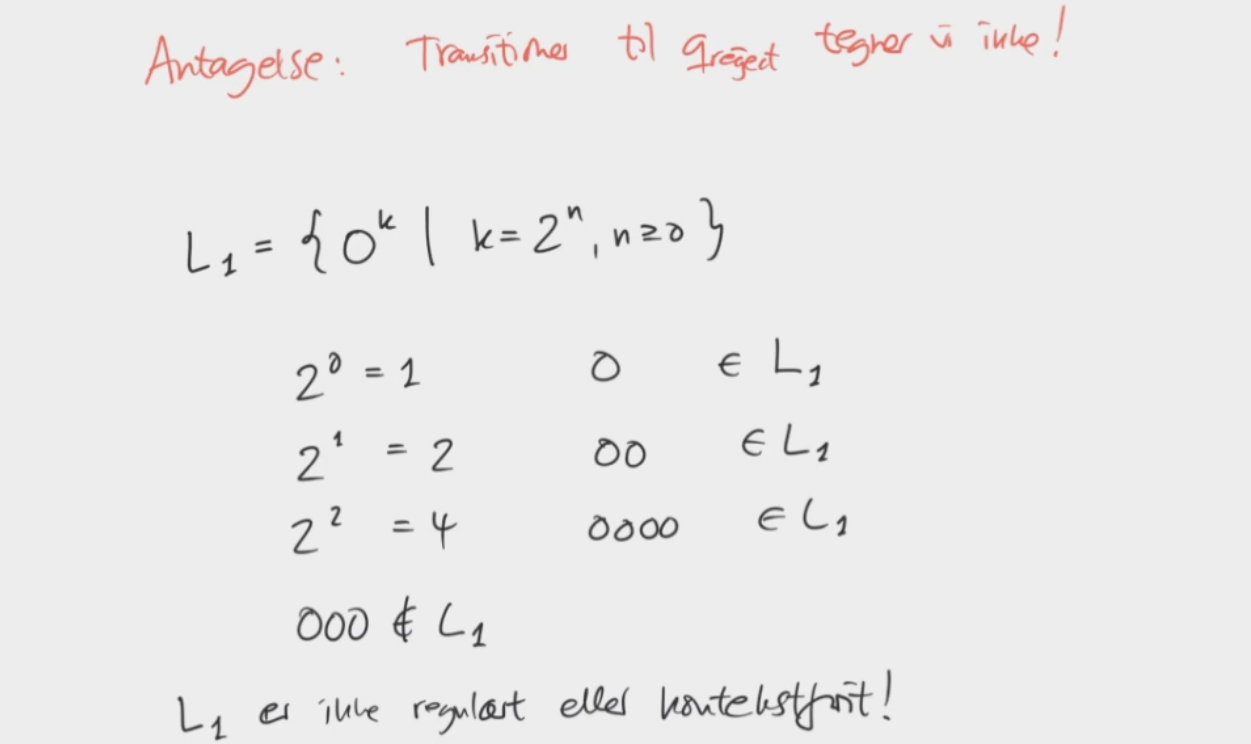 Antagelse: Transitioner til qreject tegner vi ikke!
L₁ = {0ᵏ | k = 2ⁿ, n ≥ 0}
2⁰ = 1 0 ∈ L₁
2¹ = 2 00 ∈ L₁
2² = 4 0000 ∈ L₁
000 ∉ L₁
L₁ er ikke regulært eller kontekstfrit!